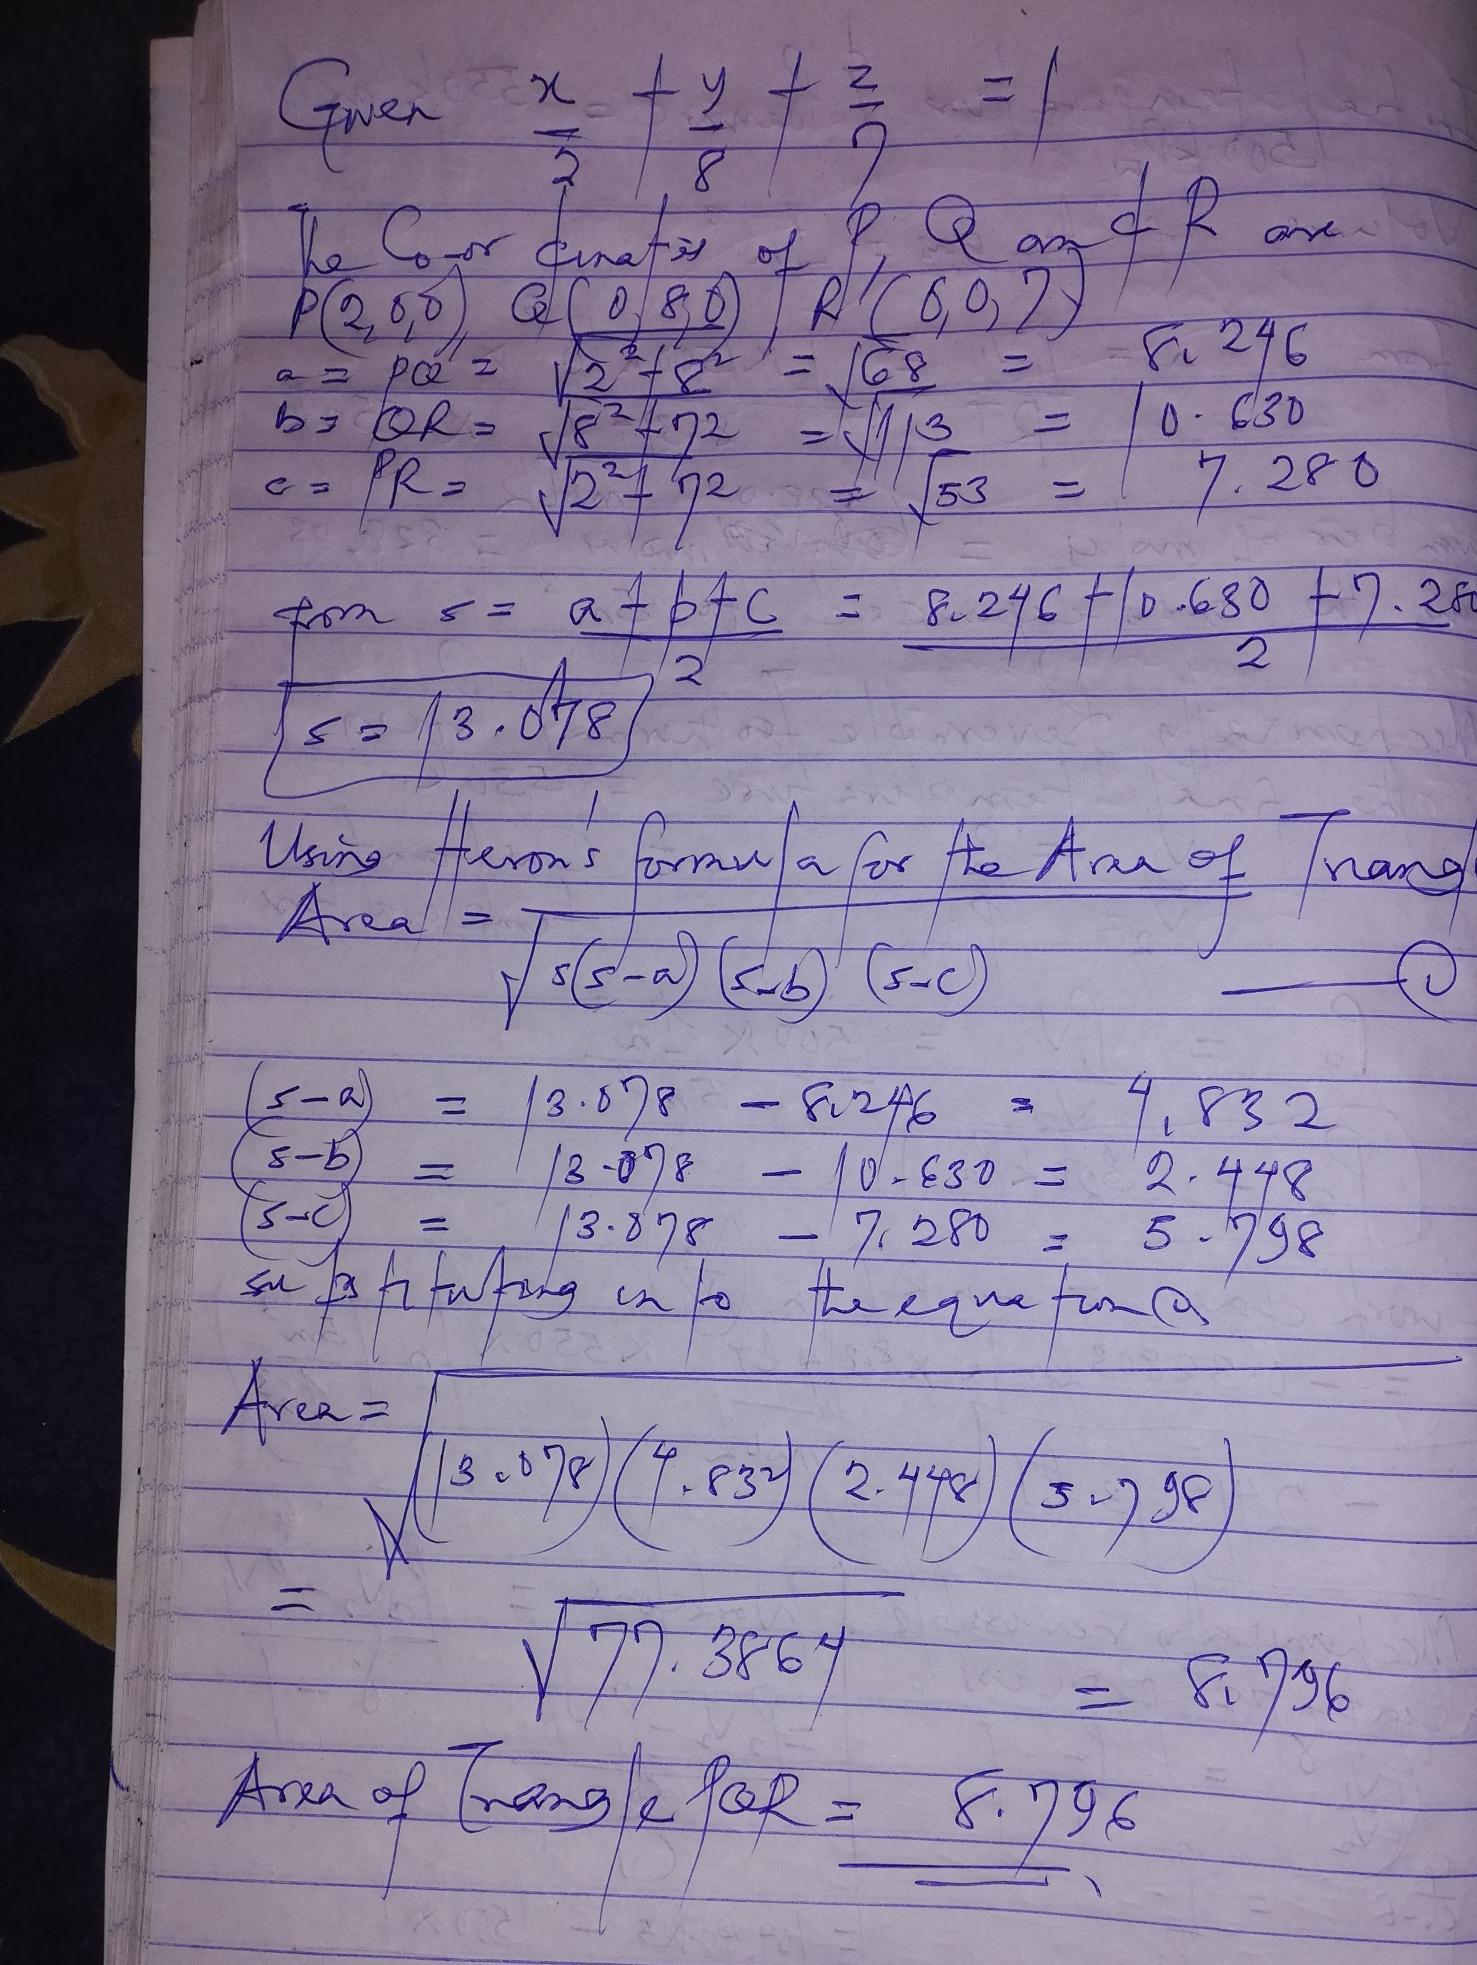 Given x/2 + y/8 + z/7 = 1
The Co-ordinates of P, Q and R are
P(2,0,0), Q(0,8,0), R(0,0,7)
a = PQ = √2²+8² = √68 = 8.246
b = QR = √8²+7² = √113 = 10.630
c = PR = √2²+7² = √53 = 7.280
from s = a+b+c/2 = 8.246+10.630+7.280/2
s = 13.078
Using Heron's formula for the Area of Triangle
Area = √s(s-a)(s-b)(s-c) —①
(s-a) = 13.078 - 8.246 = 4.832
(s-b) = 13.078 - 10.630 = 2.448
(s-c) = 13.078 - 7.280 = 5.798
substituting into the equation ①
Area =
√(13.078)(4.832)(2.448)(5.798)
= √77.3864 = 8.796
Area of Triangle PQR = 8.796